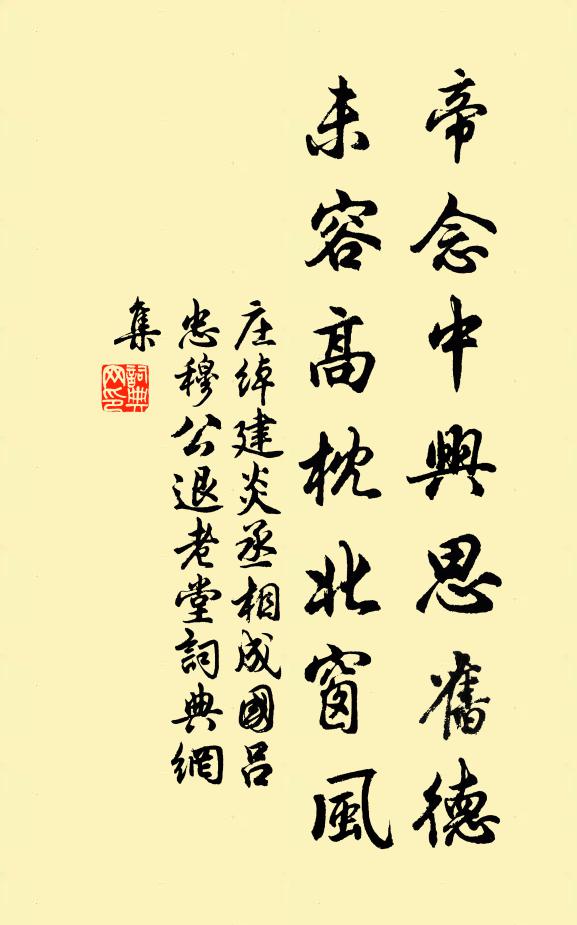 帝念中興思舊德
未容高枕北窗風
庄綽建炎丞相成國吕
忠穆公退老堂詞典網
集
詞典網印